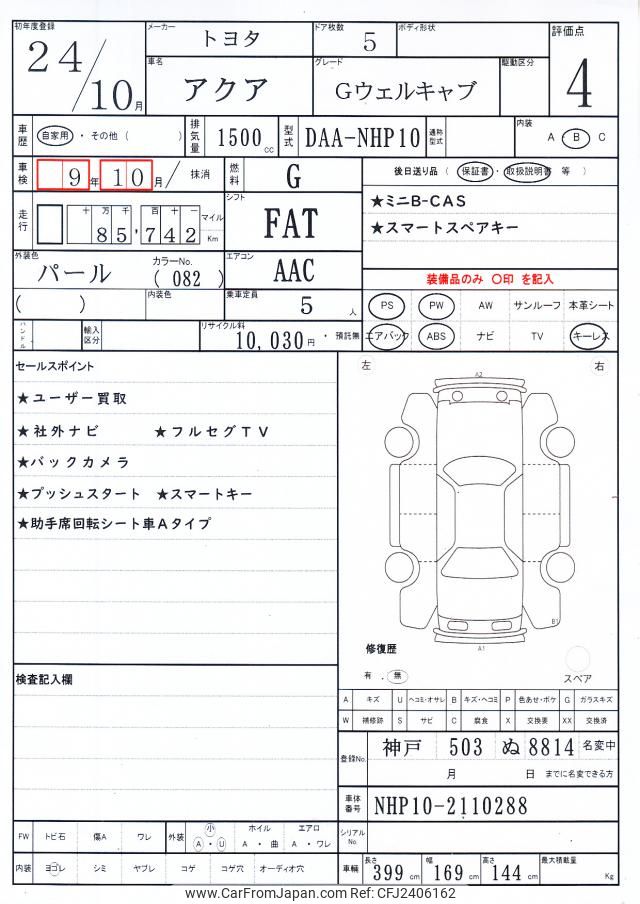 初年度登録 24/10月
メーカー トヨタ
ドア枚数 5
ボディ形状
評価点 4
車名 アクア
グレード Gウェルキャブ
駆動区分
車歴 自家用 ・ その他 ( )
排気量 1500 cc
型式 DAA-NHP10
通称型式
内装 A ・ B ・ C
車検 9年 10月 / 抹消
燃料 G
後日送り品 ( 保証書 ・ 取扱説明書 等 )
★ミニB-CAS
★スマートスペアキー
走行 十 万 千 百 十 一
85,742 マイル Km
シフト FAT
外装色 パール
カラーNo. ( 082 )
エアコン AAC
装備品のみ 〇印 を記入
( )
内装色
乗車定員 5 人
PS PW AW サンルーフ 本革シート
ハンドル
輸入区分
リサイクル料 10,030円 ・ 預託無
エアバック ABS ナビ TV キーレス
セールスポイント
★ユーザー買取
★社外ナビ ★フルセグTV
★バックカメラ
★プッシュスタート ★スマートキー
★助手席回転シート車Aタイプ
左 右
A2
B1
A1
修復歴
有 . 無
スペア
検査記入欄
A キズ U ヘコミ・オサレ B キズ・ヘコミ P 色あせ・ボケ G ガラスキズ
W 補修跡 S サビ C 腐食 X 交換要 XX 交換済
登録No. 神戸 503 ぬ 8814 名変中
月 日 までに名変できる方
車体番号 NHP10-2110288
FW トビ石 傷A ワレ
外装 小 A ・ U
ホイル A ・ 曲
エアロ A ・ ワレ
シリアルNo.
内装 ヨゴレ シミ ヤブレ コゲ コゲ穴 オーディオ穴
車輌 長さ 399 cm 幅 169 cm 高さ 144 cm 最大積載量 Kg
www.CarFromJapan.com Ref: CFJ2406162